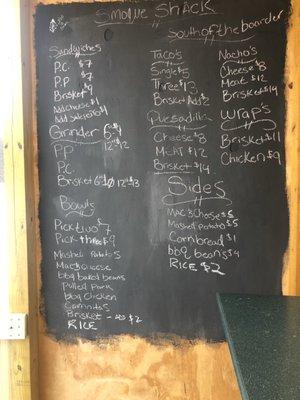 SMOQUE SHACK
South of the boarder
Sandwishes
P.C. $7
P.P $7
Brisket $9
Add cheese $1
Grinder 6" $9
12" $12
PP
P.C.
Brisket 6" 10 12" 13
Bowls
Pick two $7
Pick three $9
Mashed Potatos
Mac & Cheese
bbq baked beans
Pulled Pork
bbq Chicken
Carnitas
Brisket - add $2
RICE
Taco's
Single $5
Three $13
Brisket Add 2
Quesadilla
Cheese $8
MEAT $12
Brisket $14
Sides
MAC & Cheese $5
Mashed Potato $5
Cornbread $1
bbq beans $4
RICE $2
Nacho's
Cheese $8
Meat $12
Brisket $14
Wrap's
Brisket $11
Chicken $9